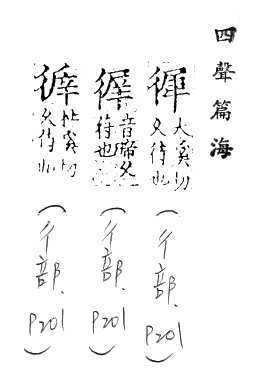 四聲篇海
大奚切
又待也
(彳部.
P201)
音帝又
待也
(彳部.
P201)
杜奚切
又待也
(彳部.
P201)